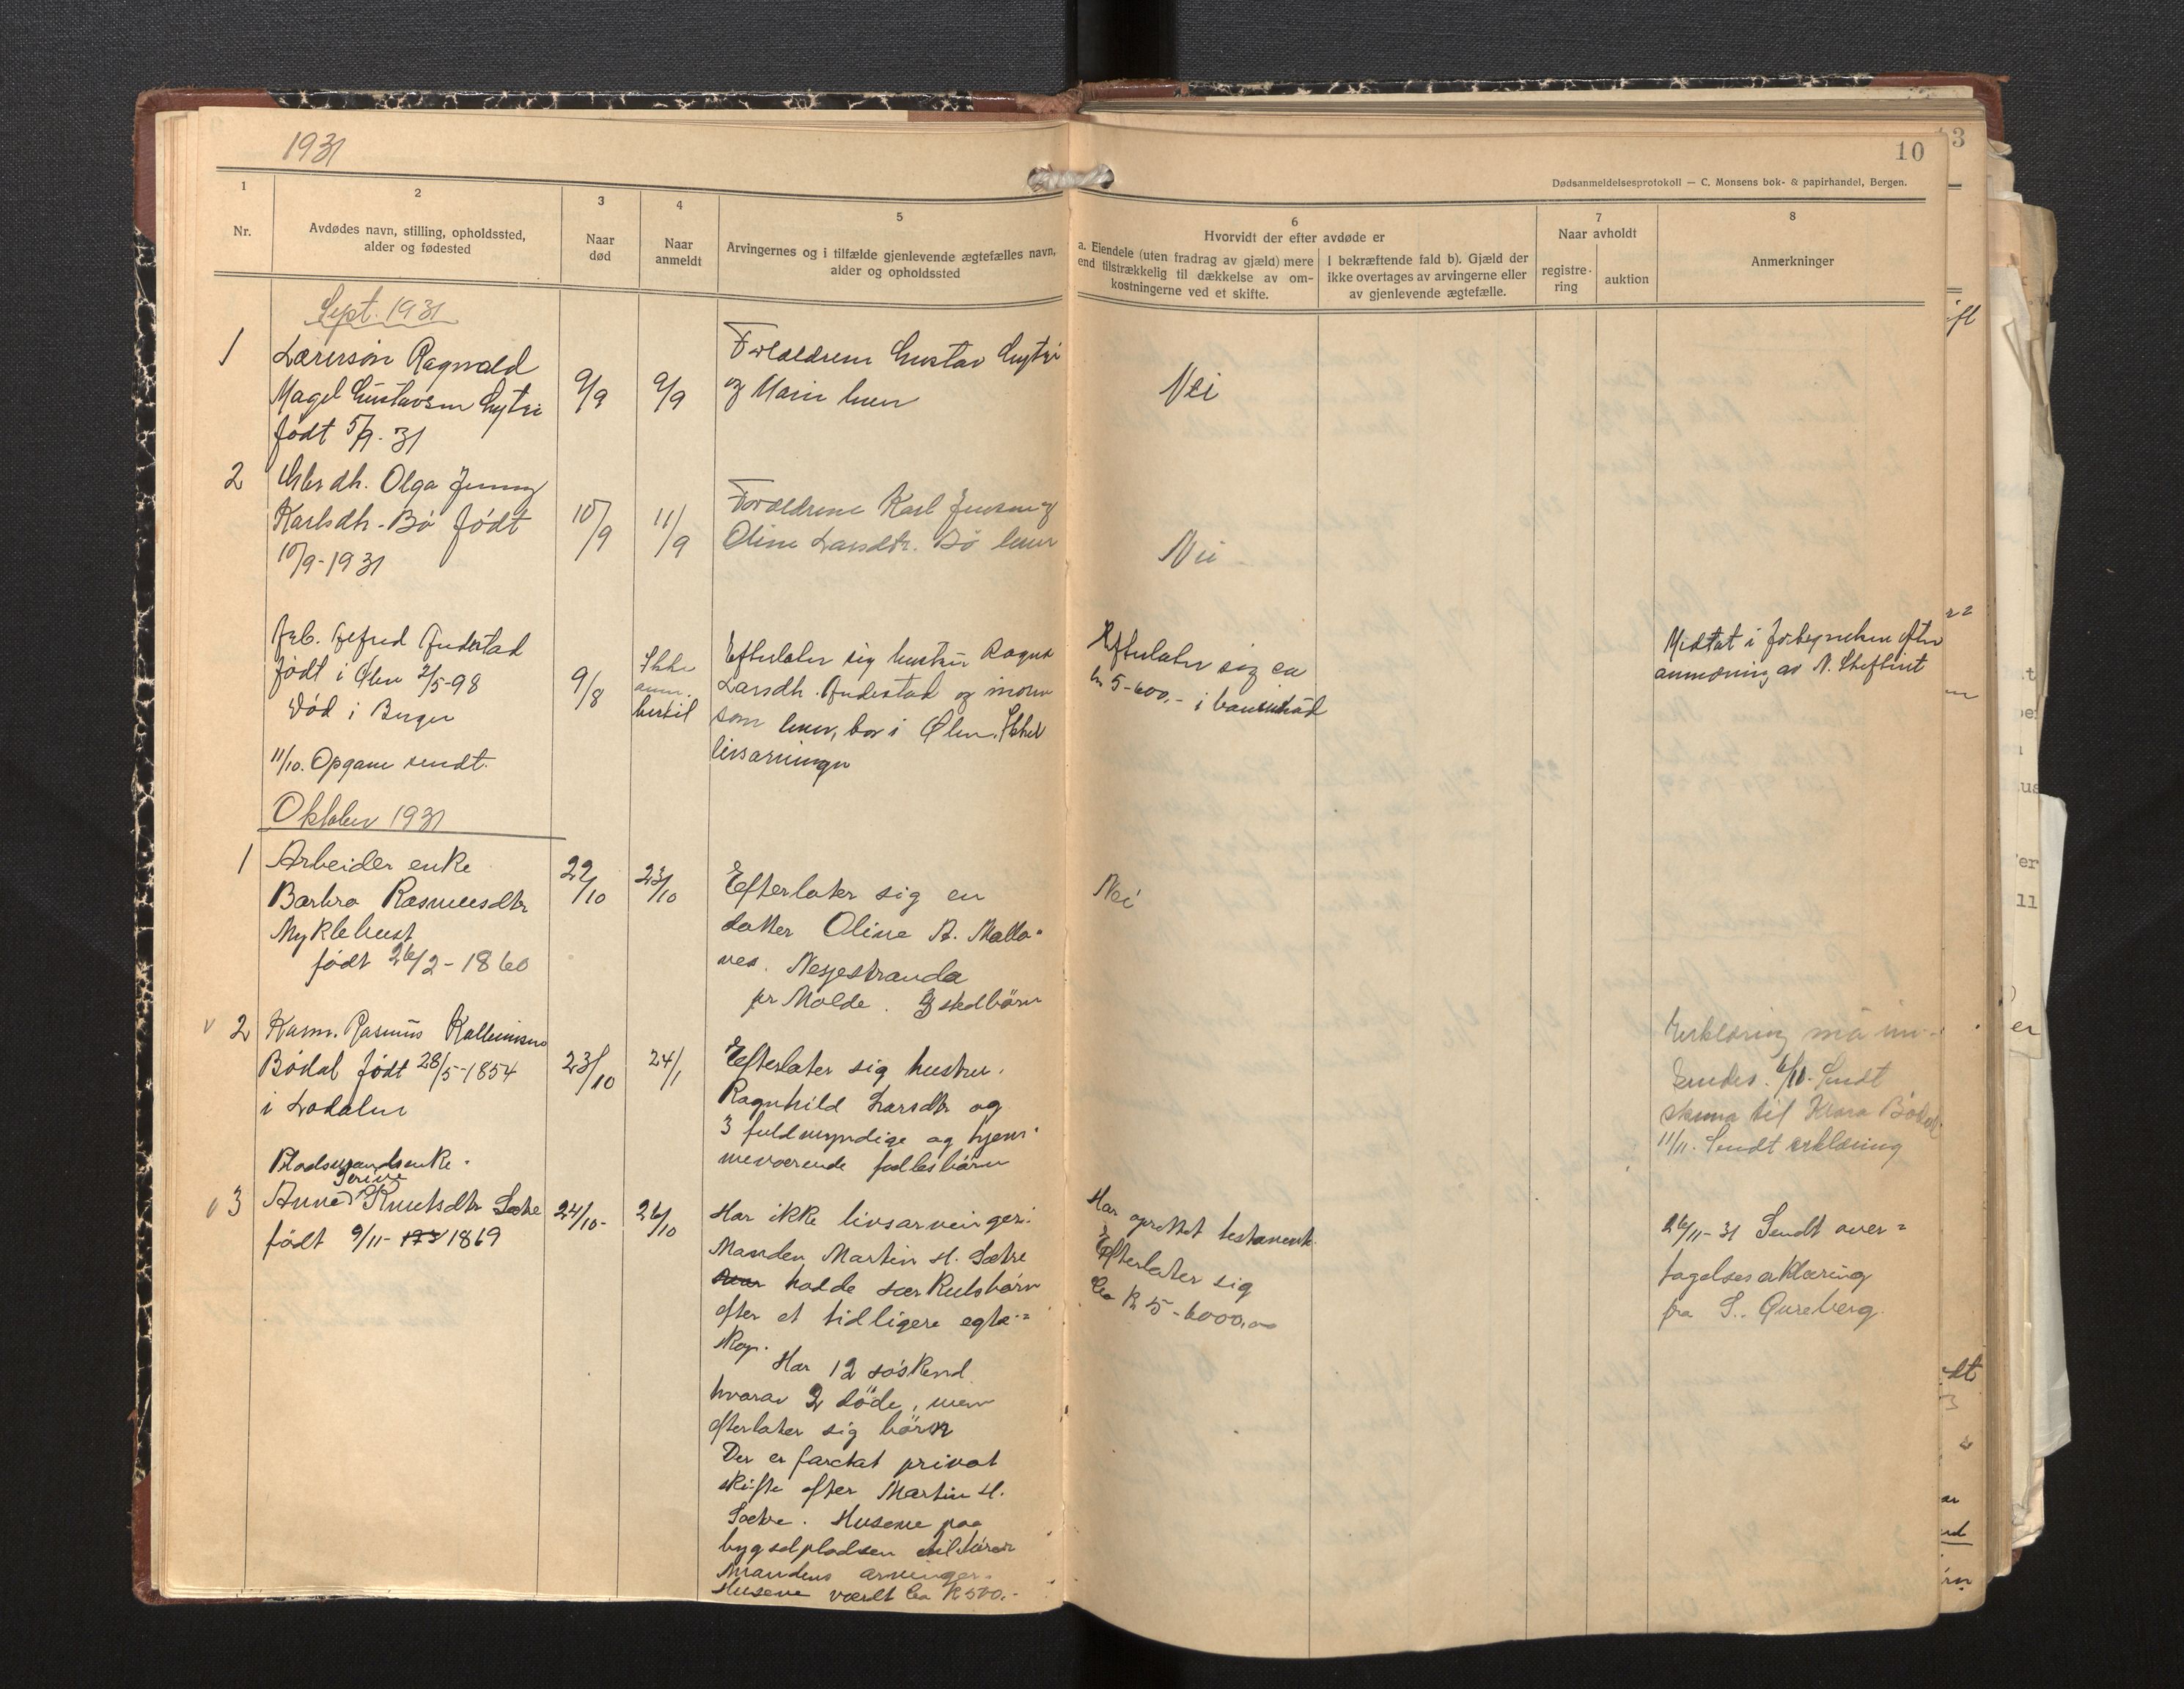 1931
10
Dødsanmeldelsesprotokoll — C. Monsens bok- & papirhandel, Bergen.
1
Nr.
2
Avdødes navn, stilling, opholdssted,
alder og fødested
3
Naar
død
4
Naar
anmeldt
5
Arvingernes og i tilfælde gjenlevende ægtefælles navn,
alder og opholdssted
6
Hvorvidt der efter avdøde er
a. Eiendele (uten fradrag av gjæld) mere
end tilstrækkelig til dækkelse av om-
kostningerne ved et skifte.
I bekræftende fald b). Gjæld der
ikke overtages av arvingerne eller
av gjenlevende ægtefælle.
7
Naar avholdt
registre-
ring
auktion
8
Anmerkninger
Sept. 1931
1
Ragnvald
Magel Gustavsen
født 5/9-31
9/9
9/9
Forældrene Gustav
og Marie
Nei
2
Olga Jenny
Karlsdh. Bö født
10/9-1931
10/9
11/9
Forældrene Karl Jensen og
Oline Larsdtr. Bö
Nei
Arb. Alfred
født i Ølen 2/5-98
Död i Bergen
11/10. Opgave sendt.
9/8
Ikke
anm.
hertil
Efterlater sig hustru Ragna
Larsdh. og moren
som lever, bor i Ølen. Ikke
livsarvinger
Efterlater sig ca
kr 5-600,- i
Medtat i efter
av N.
Oktober 1931
1
Arbeider enke
Barbro Rasmusdtr
Myklebust
født 26/2-1860
22/10
23/10
Efterlater sig en
datter Oline A. Mallo-
nes. Nesjestranda
pr Molde.
Nei
v 2
Kaarm. Rasmus
Bödal født 28/5-1854
i Lodalen
23/10
24/1
Efterlater sig hustru.
Ragnhild Larsdtr og
3 fuldmyndige og hjem-
meværende fellesbörn
Erklæring må inn-
sendes. 6/10. Sendt
skema til Klara Bödal
11/11. Sendt erklæring
v 3
Pladsmandsenke.
Serine
Anne Knutsdtr Sætre
født 9/11- 1869
24/10-
26/10
Har ikke livsarvinger.
Manden Martin H. Sætre
hadde særkulsbörn
efter et tidligere egte-
skap.
Har 12 söskend
hvorav 2 döde, men
efterlater sig börn
Der er foretat privat
skifte efter Martin H.
Sætre. Husene paa
bygselpladsen tilhörer
Mandens arvinger.
Husene værdt ca k 500,-
Har oprettet testament.
Efterlater sig
Ca k 5-6000,00
26/11-31 Sendt over=
tagelseserklæring
fra S.